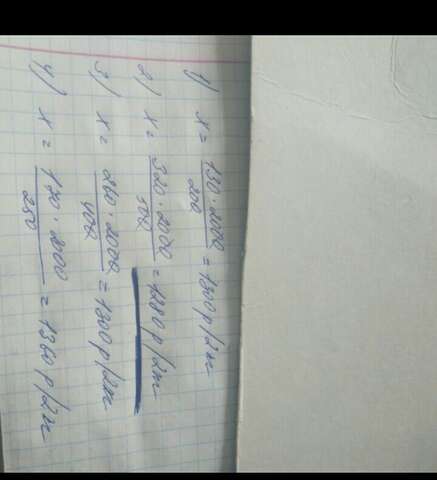 1) x = 130 · 2000 / 200 = 1300 р/2м
2) x = 320 · 2000 / 500 = 1280 р/2м
3) x = 260 · 2000 / 400 = 1300 р/2м
4) x = 170 · 2000 / 250 = 1360 р/2м